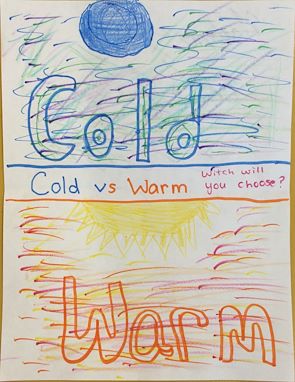 Cold
Cold vs Warm
Witch will
you choose?
Warm